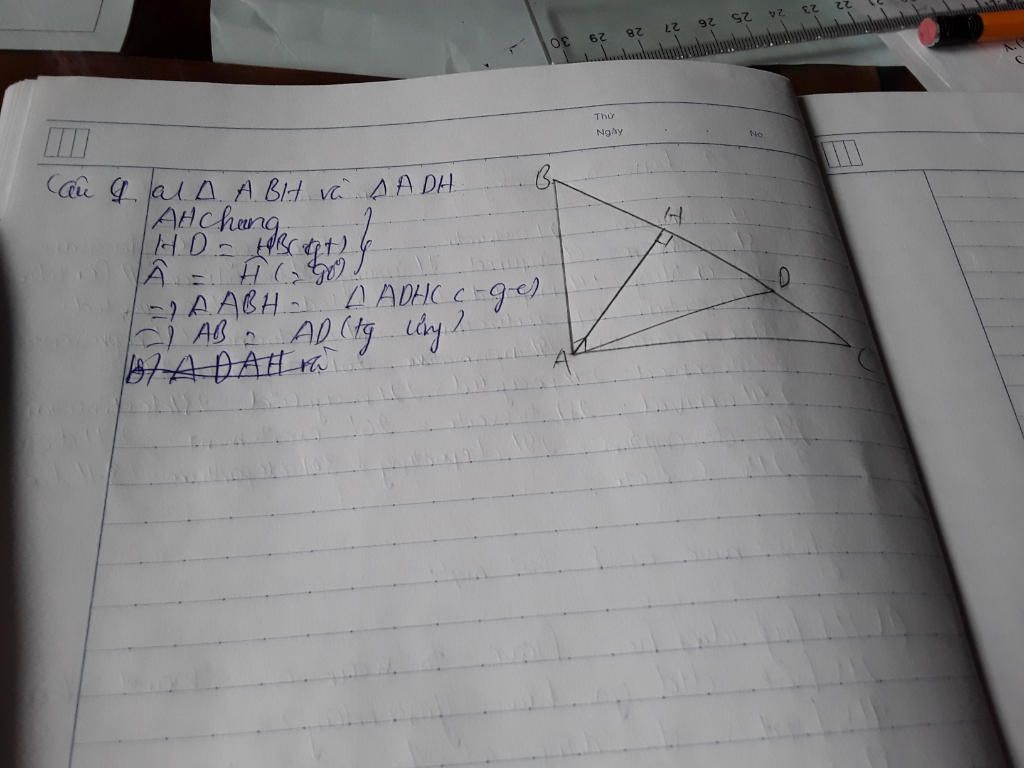 30 29 28 27 26 25 24 23 22 21
Thứ
Ngày . . No.
Câu 9 a) Δ ABH và Δ ADH
AH Chung
HD = HB (gt)
Â = Ĥ (= 90°)
=) Δ ABH = Δ ADH (c-g-c)
=) AB = AD (tg ứng)
b) Δ DAH và
B
H
D
A
C